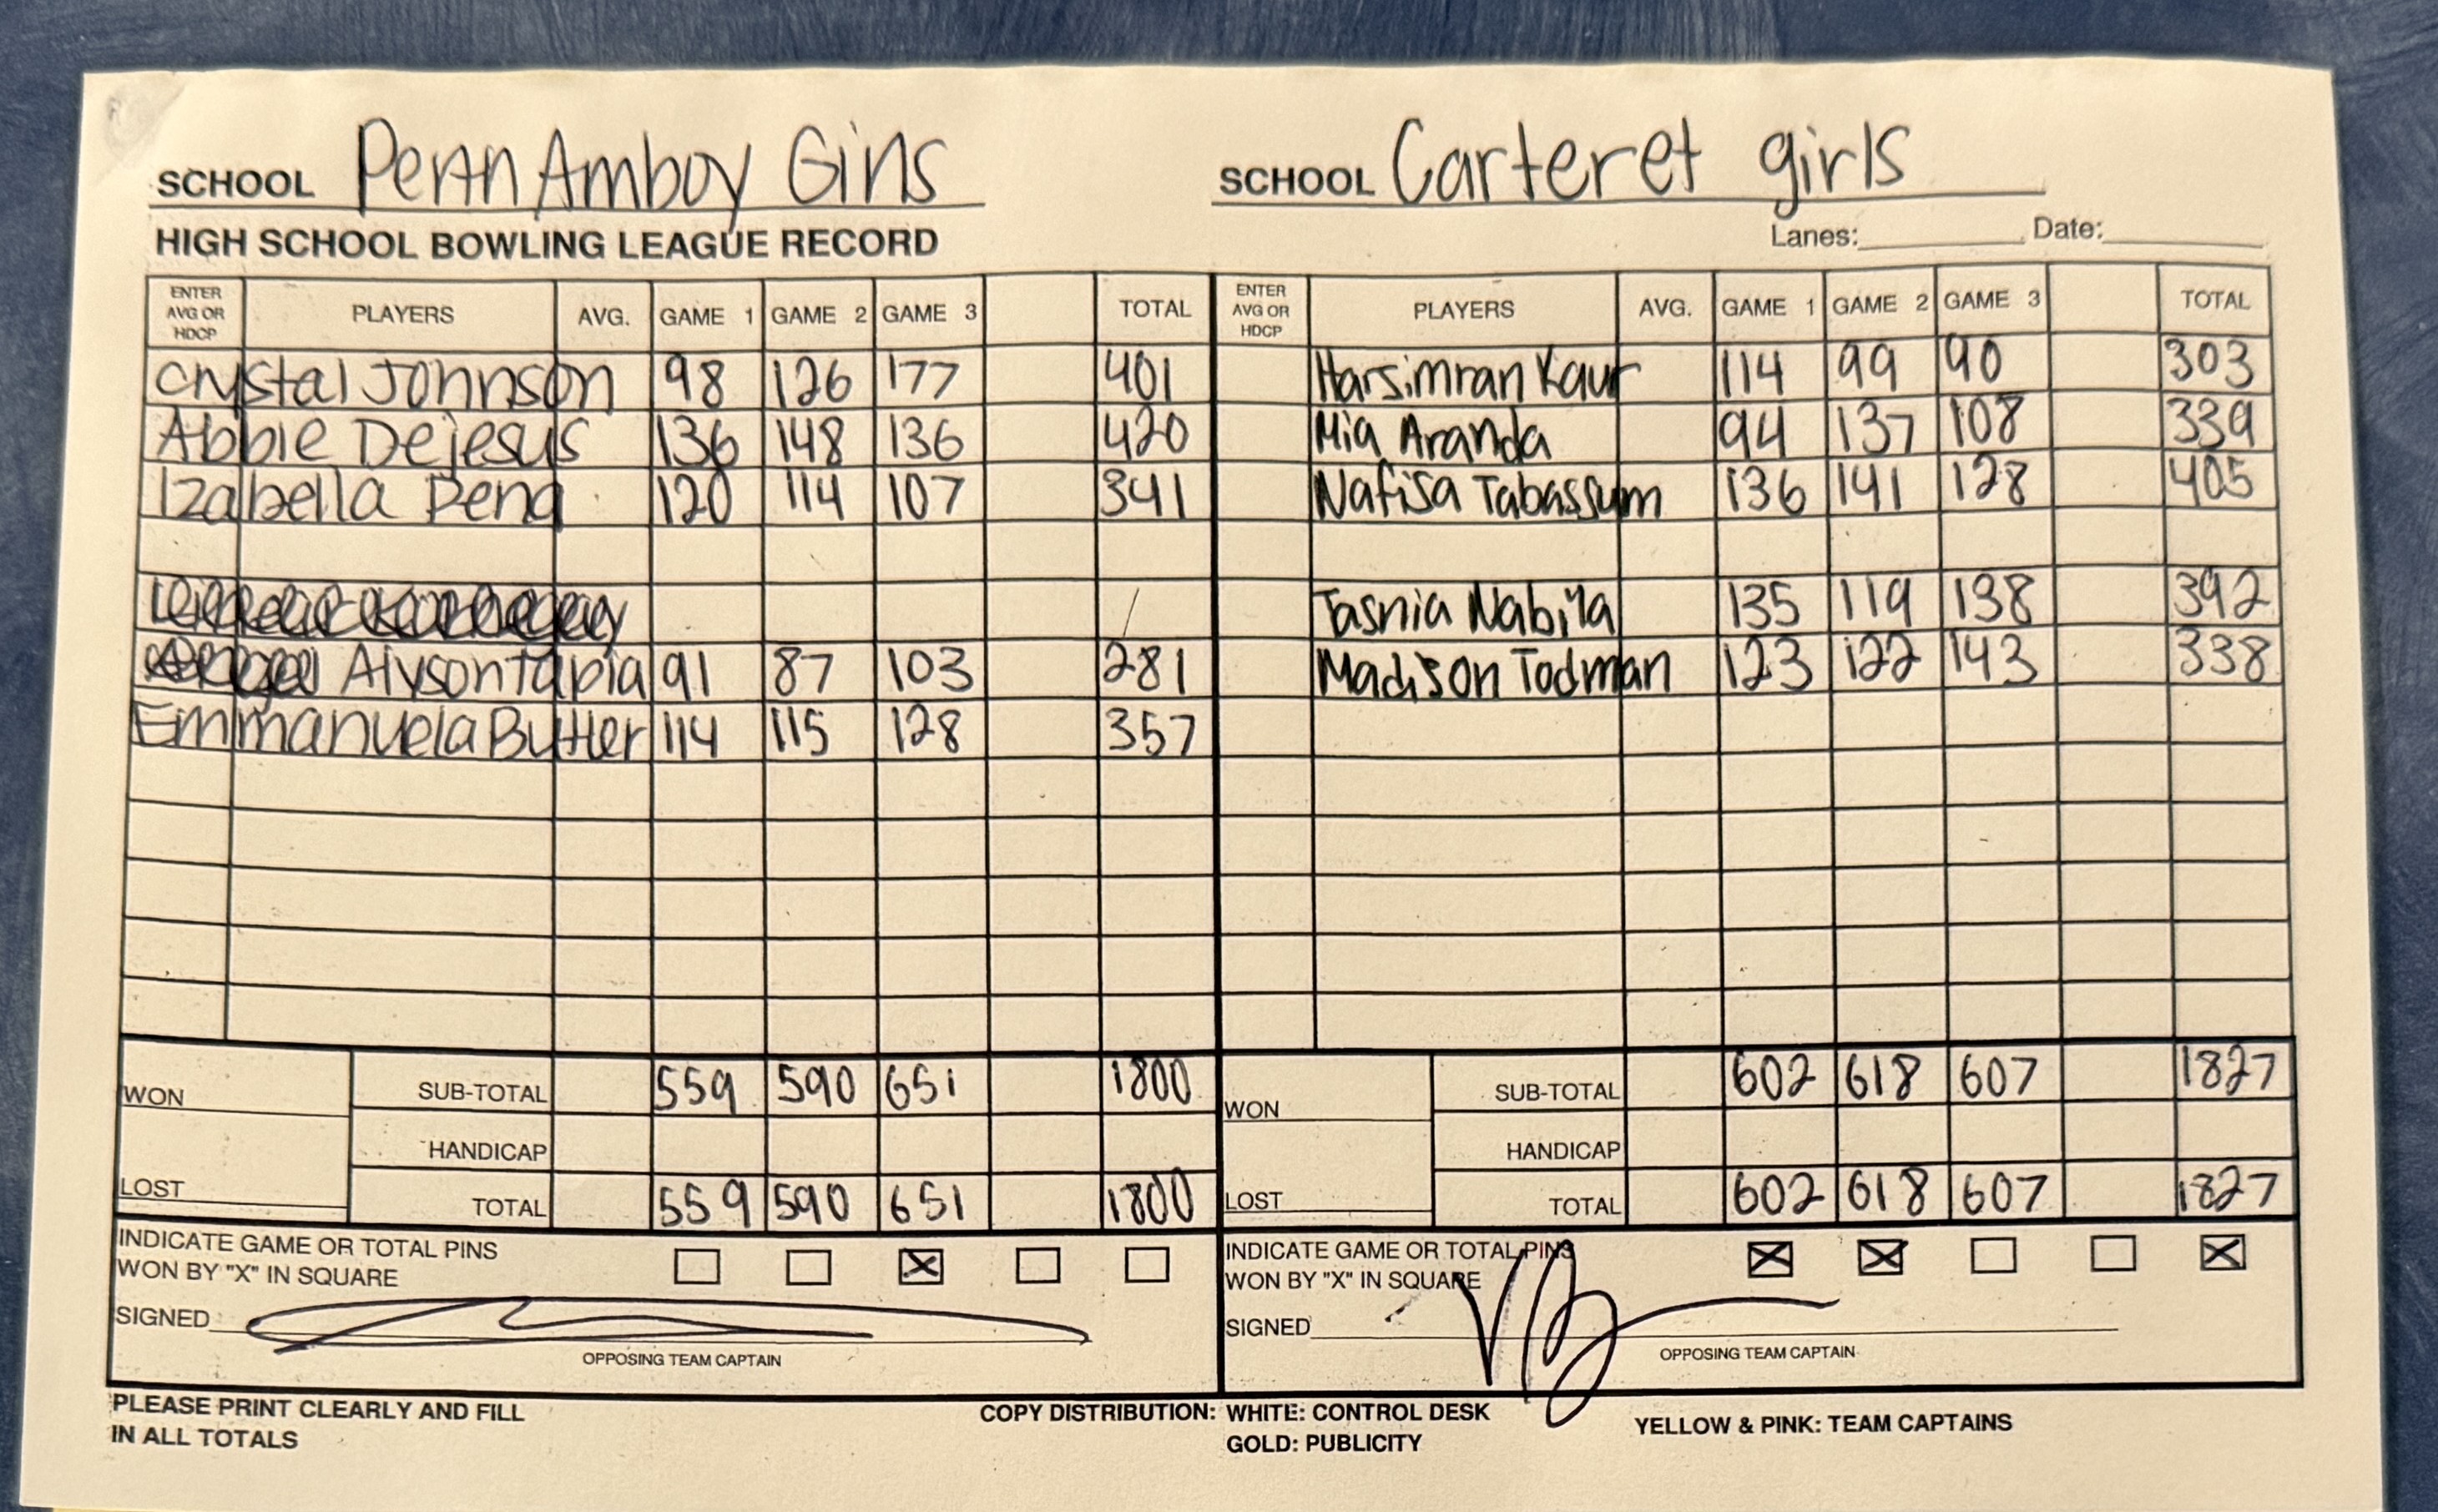 SCHOOL Perth Amboy Girls
SCHOOL Carteret girls
HIGH SCHOOL BOWLING LEAGUE RECORD
Lanes: Date:
ENTER AVG OR HDCP PLAYERS AVG. GAME 1 GAME 2 GAME 3 TOTAL ENTER AVG OR HDCP PLAYERS AVG. GAME 1 GAME 2 GAME 3 TOTAL
Crystal Johnson 98 126 177 401 Harsimran Kaur 114 99 90 303
Abbie Dejesus 136 148 136 420 Mia Aranda 94 137 108 339
Izabella Pena 120 114 107 341 Nafisa Tabassum 136 141 128 405
Tasnia Nabila 135 119 138 392
Alyson Tapia 91 87 103 281 Madison Todman 123 122 143 338
Emmanuela Butler 114 115 128 357
WON SUB-TOTAL 559 590 651 1800 WON SUB-TOTAL 602 618 607 1827
HANDICAP HANDICAP
LOST TOTAL 559 590 651 1800 LOST TOTAL 602 618 607 1827
INDICATE GAME OR TOTAL PINS
WON BY "X" IN SQUARE X
INDICATE GAME OR TOTAL PINS
WON BY "X" IN SQUARE X X X
SIGNED SIGNED
OPPOSING TEAM CAPTAIN OPPOSING TEAM CAPTAIN
PLEASE PRINT CLEARLY AND FILL
IN ALL TOTALS
COPY DISTRIBUTION: WHITE: CONTROL DESK
GOLD: PUBLICITY
YELLOW & PINK: TEAM CAPTAINS